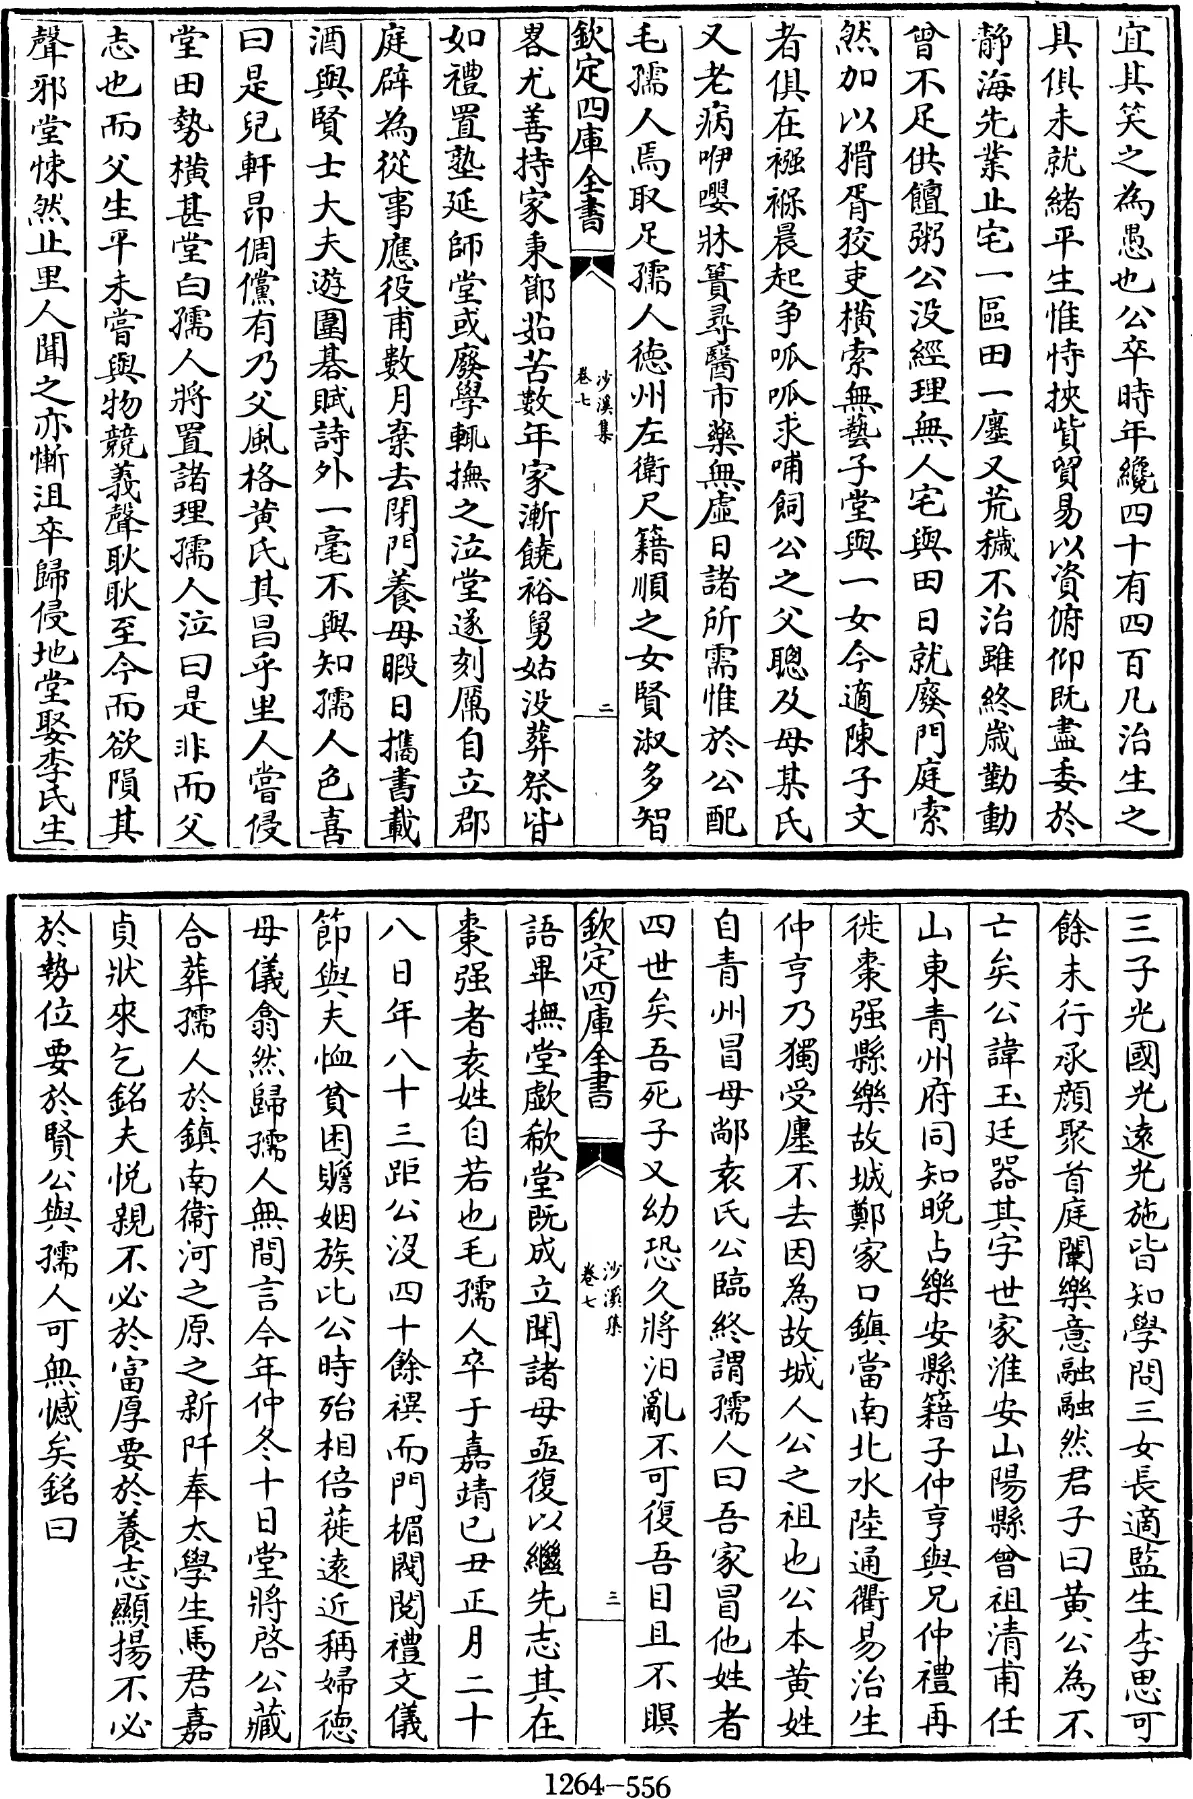 宜其笑之為愚也公卒時年纔四十有四百凡治生之
具俱未就緒平生惟恃挾貲貿易以資俯仰既盡委於
靜海先業止宅一區田一廛又荒穢不治雖終歳勤動
曾不足供饘粥公没經理無人宅與田日就廢門庭索
然加以猾胥狡吏橫索無藝子堂與一女今適陳子文
者俱在襁褓晨起争呱呱求哺飼公之父聰及母某氏
又老病咿嚶牀簀尋醫市藥無虛日諸所需惟於公配
毛孺人焉取足孺人徳州左衛尺籍順之女賢淑多智
欽定四庫全書
沙溪集
卷七
二
畧尤善持家秉節茹苦數年家漸饒裕舅姑没葬祭皆
如禮置塾延師堂或廢學輒撫之泣堂遂刻厲自立郡
庭辟為從事應役甫數月棄去閉門養母暇日攜書載
酒與賢士大夫遊圍碁賦詩外一毫不與知孺人色喜
曰是兒軒昂倜儻有乃父風格黄氏其昌乎里人嘗侵
堂田勢橫甚堂白孺人將置諸理孺人泣曰是非而父
志也而父生平未嘗與物競義聲耿耿至今而欲隕其
聲邪堂悚然止里人聞之亦慚沮卒歸侵地堂娶李氏生
三子光國光遠光施皆知學問三女長適監生李思可
餘未行承顔聚首庭闈樂意融融然君子曰黄公為不
亡矣公諱玉廷器其字世家淮安山陽縣曾祖清甫任
山東青州府同知晚占樂安縣籍子仲亨與兄仲禮再
徙棗强縣樂故城鄭家口鎮當南北水陸通衢易治生
仲亨乃獨受廛不去因為故城人公之祖也公本黄姓
自青州冒母鄗袁氏公臨終謂孺人曰吾家冒他姓者
四世矣吾死子又幼恐久將汨亂不可復吾目且不瞑
欽定四庫全書
沙溪集
卷七
三
語畢撫堂歔欷堂既成立聞諸母亟復以繼先志其在
棗强者袁姓自若也毛孺人卒于嘉靖已丑正月二十
八日年八十三距公沒四十餘禩而門楣閥閱禮文儀
節與夫恤貧困贍姻族比公時殆相倍蓰遠近稱婦徳
母儀翕然歸孺人無間言今年仲冬十日堂將啓公藏
合葬孺人於鎮南衞河之原之新阡奉太學生馬君嘉
貞狀來乞銘夫悅親不必於富厚要於養志顯揚不必
於勢位要於賢公與孺人可無憾矣銘曰
1264-556